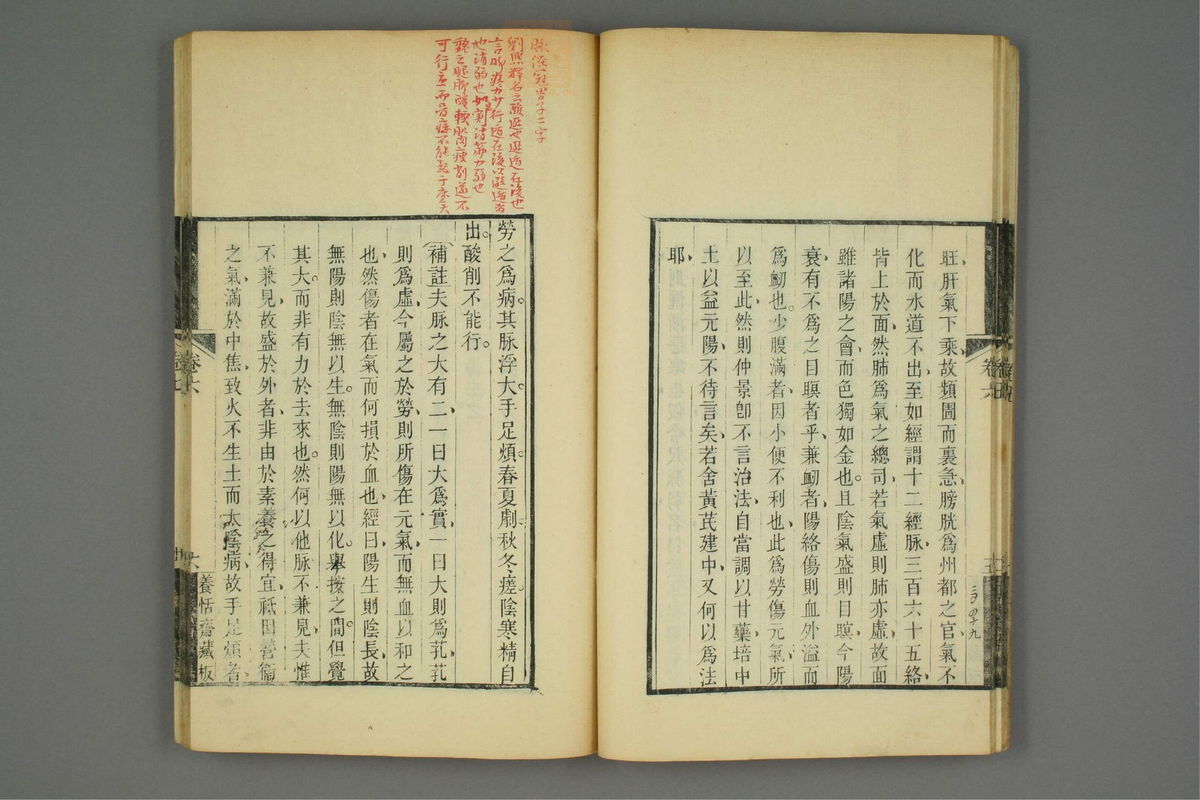 旺、肝氣下乘、故頻圊而裏急、膀胱爲州都之官、氣不
化而水道不出、至如經謂十二經脉、三百六十五絡、
皆上於面、然肺爲氣之總司、若氣虛則肺亦虛、故面
雖諸陽之會、而色獨如金也。且陰氣盛則目瞑、今陽
衰有不爲之目瞑者乎、兼衂者、陽絡傷則血外溢而
爲衂也。少腹滿者、因小便不利也、此爲勞傷元氣所
以至此、然則仲景卽不言治法、自當調以甘藥、培中
土以益元陽、不待言矣、若舍黃芪建中、又何以爲法
耶、
卷六
脉
劉熙釋名云酸遜也遜遁在後也
言脚疼力少行遁在後以遜遁者
也消弱也如割消筋力弱也
勞之爲病。其脉浮大。手足煩。春夏劇。秋冬瘥。陰寒精自
出。酸削不能行。
(補註)夫脉之大有二、一曰大爲實、一曰大則爲芤、芤
則爲虛、今屬之於勞、則所傷在元氣、而無血以和之
也、然傷者在氣、而何損於血也、經曰陽生則陰長、故
無陽則陰無以生。無陰則陽無以化。舉按之間。但覺
其大而非有力於去來也。然何以他脉不兼見、夫惟
不兼見、故盛於外者、非由於素養之得宜、祗因營衞
之氣、滿於中焦、致火不生土、而太陰病、故手足煩者、
卷六
養恬齋藏板